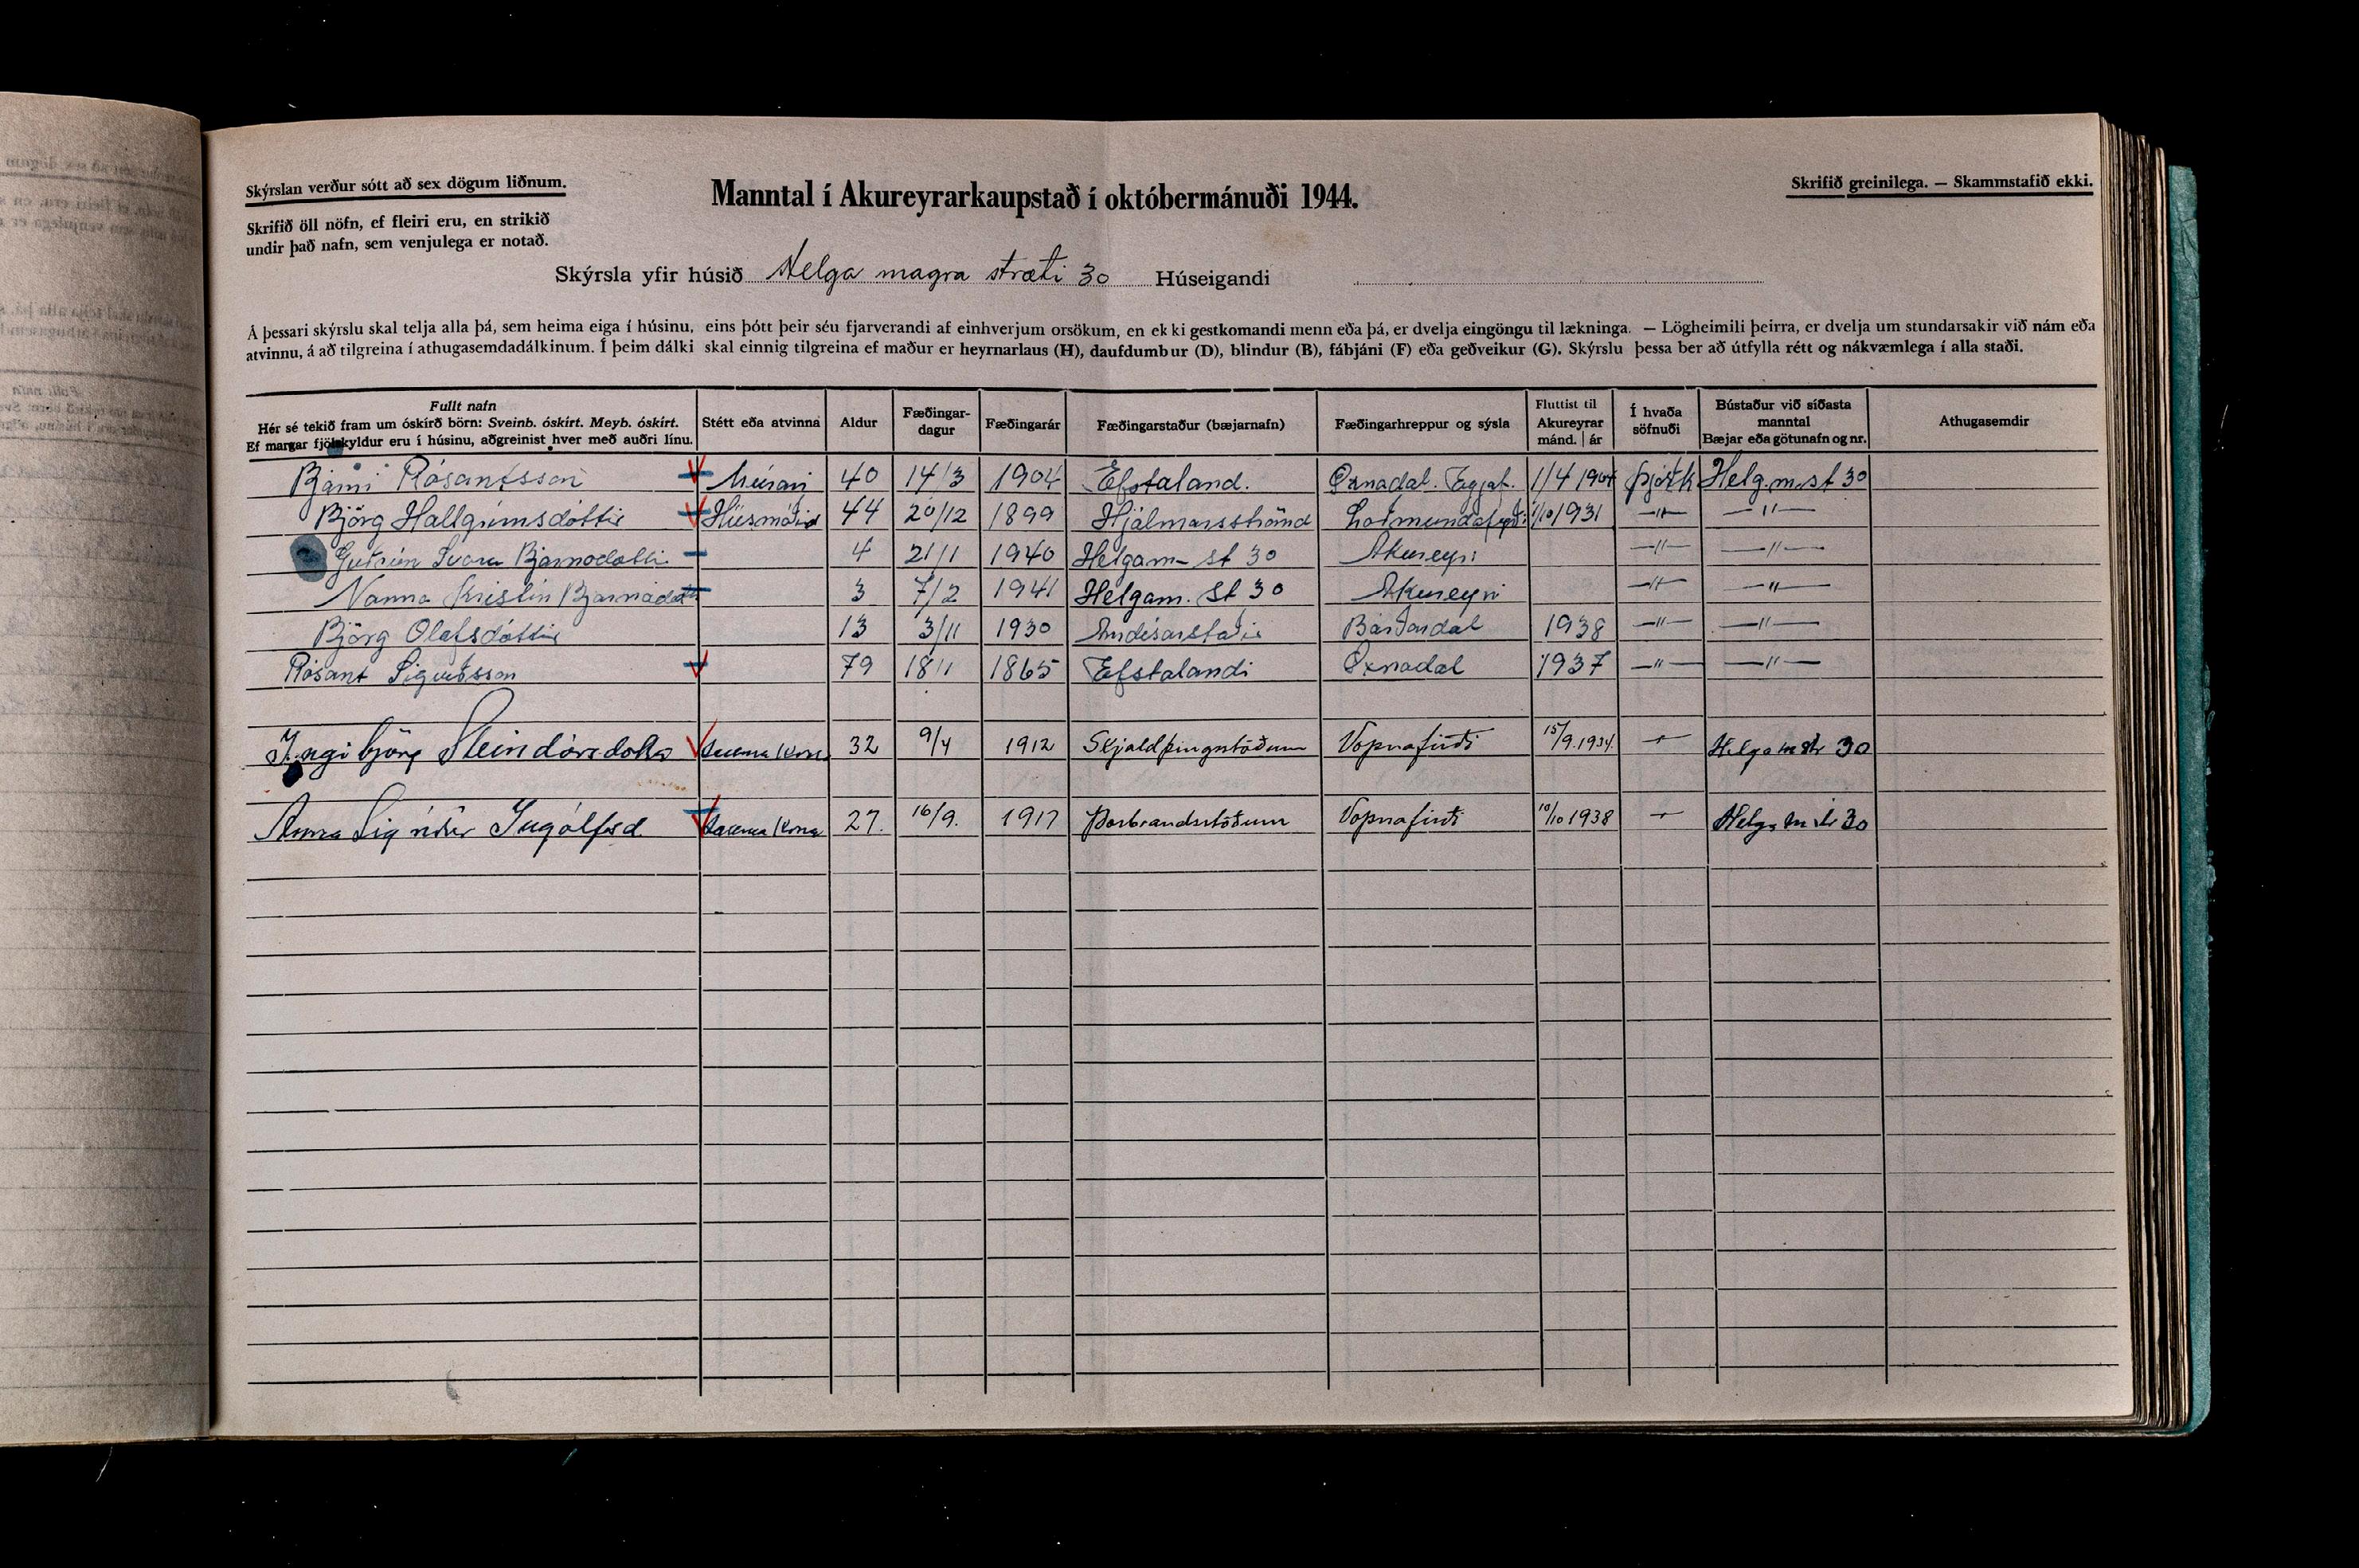 Skýrslan verður sótt að sex dögum liðnum.
Skrifið öll nöfn, ef fleiri eru, en strikið
undir það nafn, sem venjulega er notað.
Manntal í Akureyrarkaupstað í októbermánuði 1944.
Skrifið greinilega. — Skammstafið ekki.
Skýrsla yfir húsið Helga magra stræti 30 Húseigandi
Á þessari skýrslu skal telja alla þá, sem heima eiga í húsinu, eins þótt þeir séu fjarverandi af einhverjum orsökum, en ekki gestkomandi menn eða þá, er dvelja eingöngu til lækninga. — Lögheimili þeirra, er dvelja um stundarsakir við nám eða
atvinnu, á að tilgreina í athugasemdadálkinum. Í þeim dálki skal einnig tilgreina ef maður er heyrnarlaus (H), daufdumbur (D), blindur (B), fábjáni (F) eða geðveikur (G). Skýrslu þessa ber að útfylla rétt og nákvæmlega í alla staði.
Fullt nafn
Hér sé tekið fram um óskírð börn: Sveinb. óskírt. Meyb. óskírt.
Ef margar fjölskyldur eru í húsinu, aðgreinist hver með auðri línu.
Stétt eða atvinna
Aldur
Fæðingar-
dagur
Fæðingarár
Fæðingarstaður (bæjarnafn)
Fæðingarhreppur og sýsla
Fluttist til
Akureyrar
mánd. | ár
Í hvaða
söfnuði
Bústaður við síðasta
manntal
Bæjar eða götunafn og nr.
Athugasemdir
Bjarni Rósantsson Múrari 40 14/3 1904 Efstaland. Öxnadal. Eyjaf. 1/4 Þjóðk Helg.m.st 30
Björg Hallgrímsdóttir Húsmóðir 44 20/12 1899 Hjálmarsströnd Loðmundafyrði 1/10 1931 —"— —"—
Guðrún Svava Bjarnadóttir 4 21/1 1940 Helgam- st 30 Akureyri —"— —"—
Nanna Kristín Bjarnadótt 3 7/2 1941 Helgam. St 30 Akureyri —"— —"—
Björg Olafsdóttir 13 3/11 1930 Bárðardal 1938 —"— —"—
Rósant Sigurðsson 79 18/1 1865 Efstalandi Öxnadal 1937 —"— —"—
Ingibjörg Steindórsdóttir Sauma kona 32 9/4 1912 Skjaldþingstöðum Vopnafirði 15/9.1934. —"— Helga m str 30
Anna Sigríður Ingólfsd. Sauma kona 27. 16/9. 1917 Þorbrandsstöðum Vopnafirði 10/10 1938 —"— Helga m str 30